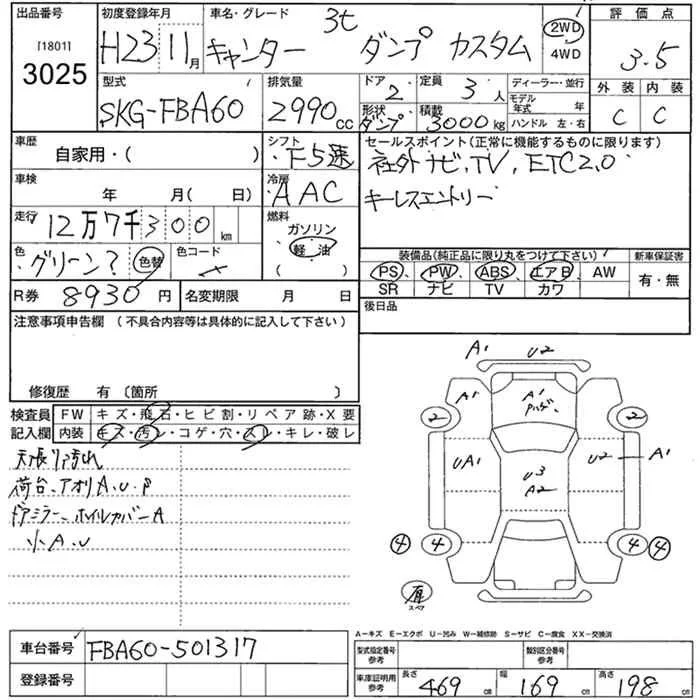 出品番号
[1801]
3025
初度登録年月
H23 11月
車名・グレード
3t
キャンター ダンプ カスタム
2WD
4WD
評価点
3.5
外装 内装
C C
型式
SKG-FBA60
排気量
2990cc
ドア
2
定員
3人
形状
ダンプ
積載
3000kg
ディーラー・並行
モデル年式 年
ハンドル 左・右
車歴
自家用・( )
シフト
F5速
車検
年 月( 日)
冷房
AAC
走行
12万7千300km
燃料
ガソリン
軽油
( )
色
グリーン? 色替
色コード
R券 8930円
名変期限 月 日
セールスポイント(正常に機能するものに限ります)
社外ナビ,TV,ETC2.0
キーレスエントリー
装備品(純正品に限り丸をつけて下さい)
PS PW ABS エアB AW
SR ナビ TV カワ
新車保証書
有・無
後日品
注意事項申告欄(不具合内容等は具体的に記入して下さい)
修復歴 有〔箇所 〕
検査員記入欄
FW キズ・飛石・ヒビ割・リペア跡・X要
内装 キズ・汚レ・コゲ・穴・スレ・キレ・破レ
天張り汚れ
荷台、アオリA.U.P
ドアミラー、ホイルカバーA
小A.U
A1 U2
A1
A1
Pハゲ
2 2
UA1
U3
A2
U2 A1
4 4 4 4
有
スペア
A−キズ E−エクボ U−凹み W−補修跡 S−サビ C−腐食 XX−交換済
車台番号 FBA60-501317
登録番号
型式指定番号
参考
類別区分番号
参考
車庫証明用
参考
長さ 469cm
幅 169cm
高さ 198cm